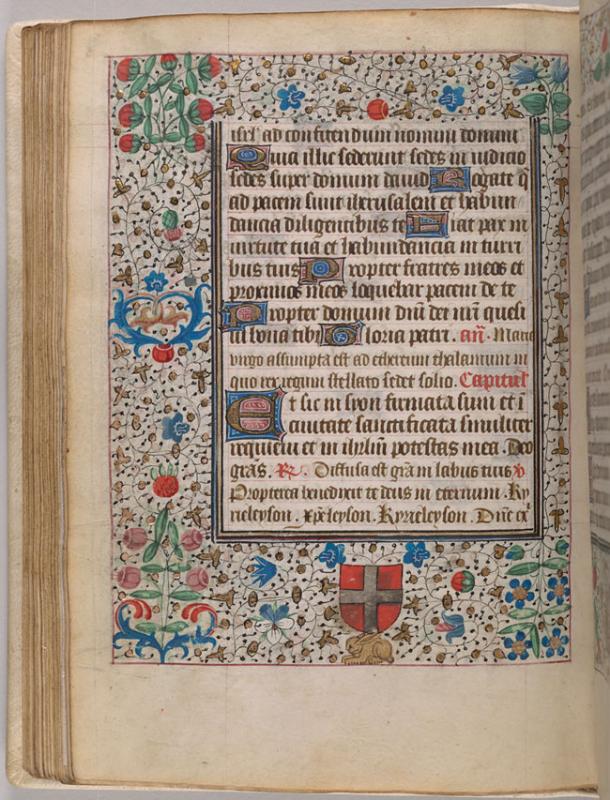 isrl' ad confitendum nomini domini
Quia illic sederunt sedes in iudicio
sedes super domum dauid Rogate q̄
ad pacem sunt iherusalem et habun
dancia diligentibus te Fiat pax in
uirtute tua et habundancia in turri
bus tuis Propter fratres meos et
proximos meos loquebar pacem de te
Propter domum dn̄i dei nr̄i quesi
ui bona tibi Gloria patri. an̄. Maria
virgo assumpta est ad ethereum thalamum in
quo rex regum stellato sedet solio. Capitul'
Et sic in syon firmata sum et ī
ciuitate sanctificata similiter
requieui et in ihrl̄m potestas mea. Deo
grās. R̷. Diffusa est grā in labiis tuis v̇
Propterea benedixit te deus in eternum. Ky
rieleyson. xp̄eleyson. Kyrieleyson. Dn̄e ex